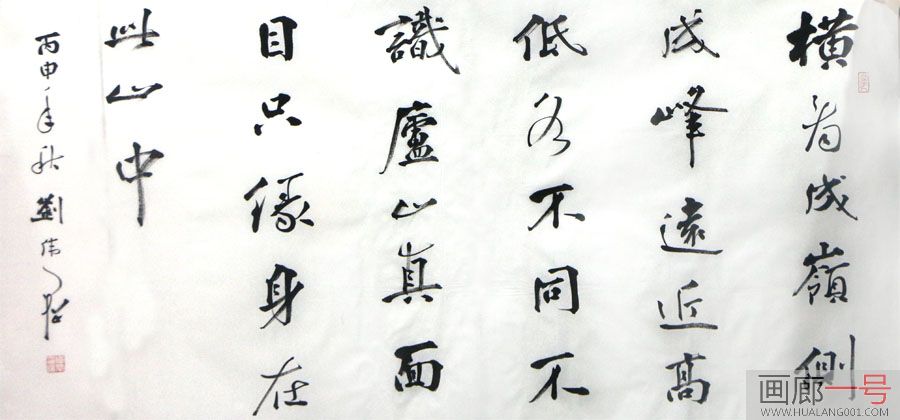 橫看成嶺側
成峰遠近高
低各不同不
識廬山真面
目只緣身在
此山中
丙申年秋劉偉
画廊一号
WWW.HUALANG001.COM